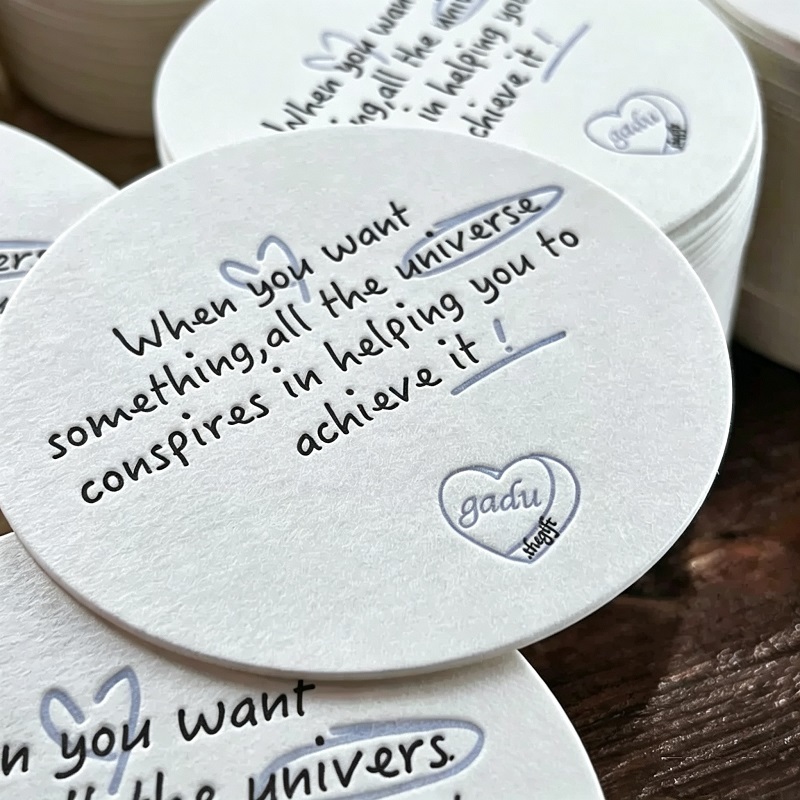 When you want
ng,all the univ
in helping you
chieve it !
gadu
ers
When you want
something,all the universe
conspires in helping you to
achieve it !
gadu
.thegift
n you want
all the univers.